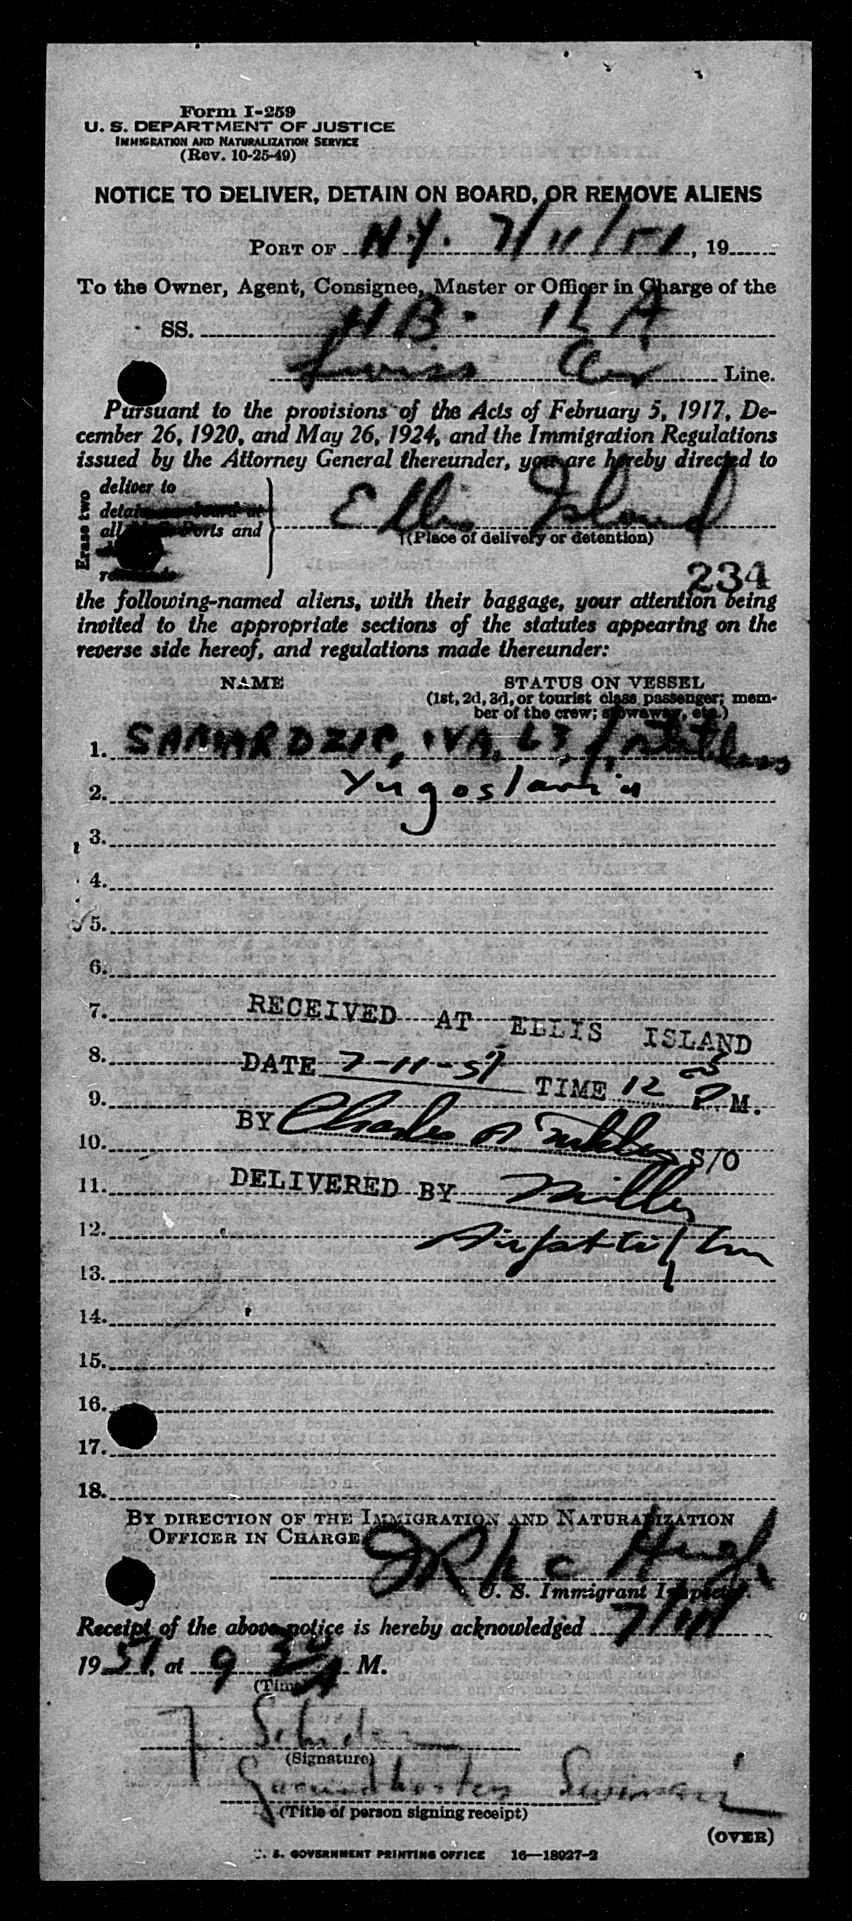 Form I-259
U. S. DEPARTMENT OF JUSTICE
IMMIGRATION AND NATURALIZATION SERVICE
(Rev. 10-25-49)
NOTICE TO DELIVER, DETAIN ON BOARD, OR REMOVE ALIENS
PORT OF N.Y. 7/11/51, 19
To the Owner, Agent, Consignee, Master or Officer in Charge of the
SS. HB-ILA
Swiss Air Line.
Pursuant to the provisions of the Acts of February 5, 1917, De-
cember 26, 1920, and May 26, 1924, and the Immigration Regulations
issued by the Attorney General thereunder, you are hereby directed to
Erase two
deliver to
detain on board at
all Ports and
Ellis Island
(Place of delivery or detention)
234
the following-named aliens, with their baggage, your attention being
invited to the appropriate sections of the statutes appearing on the
reverse side hereof, and regulations made thereunder:
NAME STATUS ON VESSEL
(1st, 2d, 3d, or tourist class passenger; mem-
ber of the crew; stowaway, etc.)
1. SAMARDZIC, IVA, 63, f,
2. Yugoslavia
3.
4.
5.
6.
7. RECEIVED AT ELLIS ISLAND
8. DATE 7-11-51 TIME 12 05 P.M.
9.
10. BY Charles S/O
11. DELIVERED BY Miller
12.
13.
14.
15.
16.
17.
18.
BY DIRECTION OF THE IMMIGRATION AND NATURALIZATION
OFFICER IN CHARGE
J R Mc Hugh
U. S. Immigrant Inspector.
Receipt of the above notice is hereby acknowledged 7/11
1951, at 9 30 A M.
(Time)
F.
(Signature)
Groundhostess Swissair
(Title of person signing receipt)
(OVER)
U. S. GOVERNMENT PRINTING OFFICE 16—18927-2